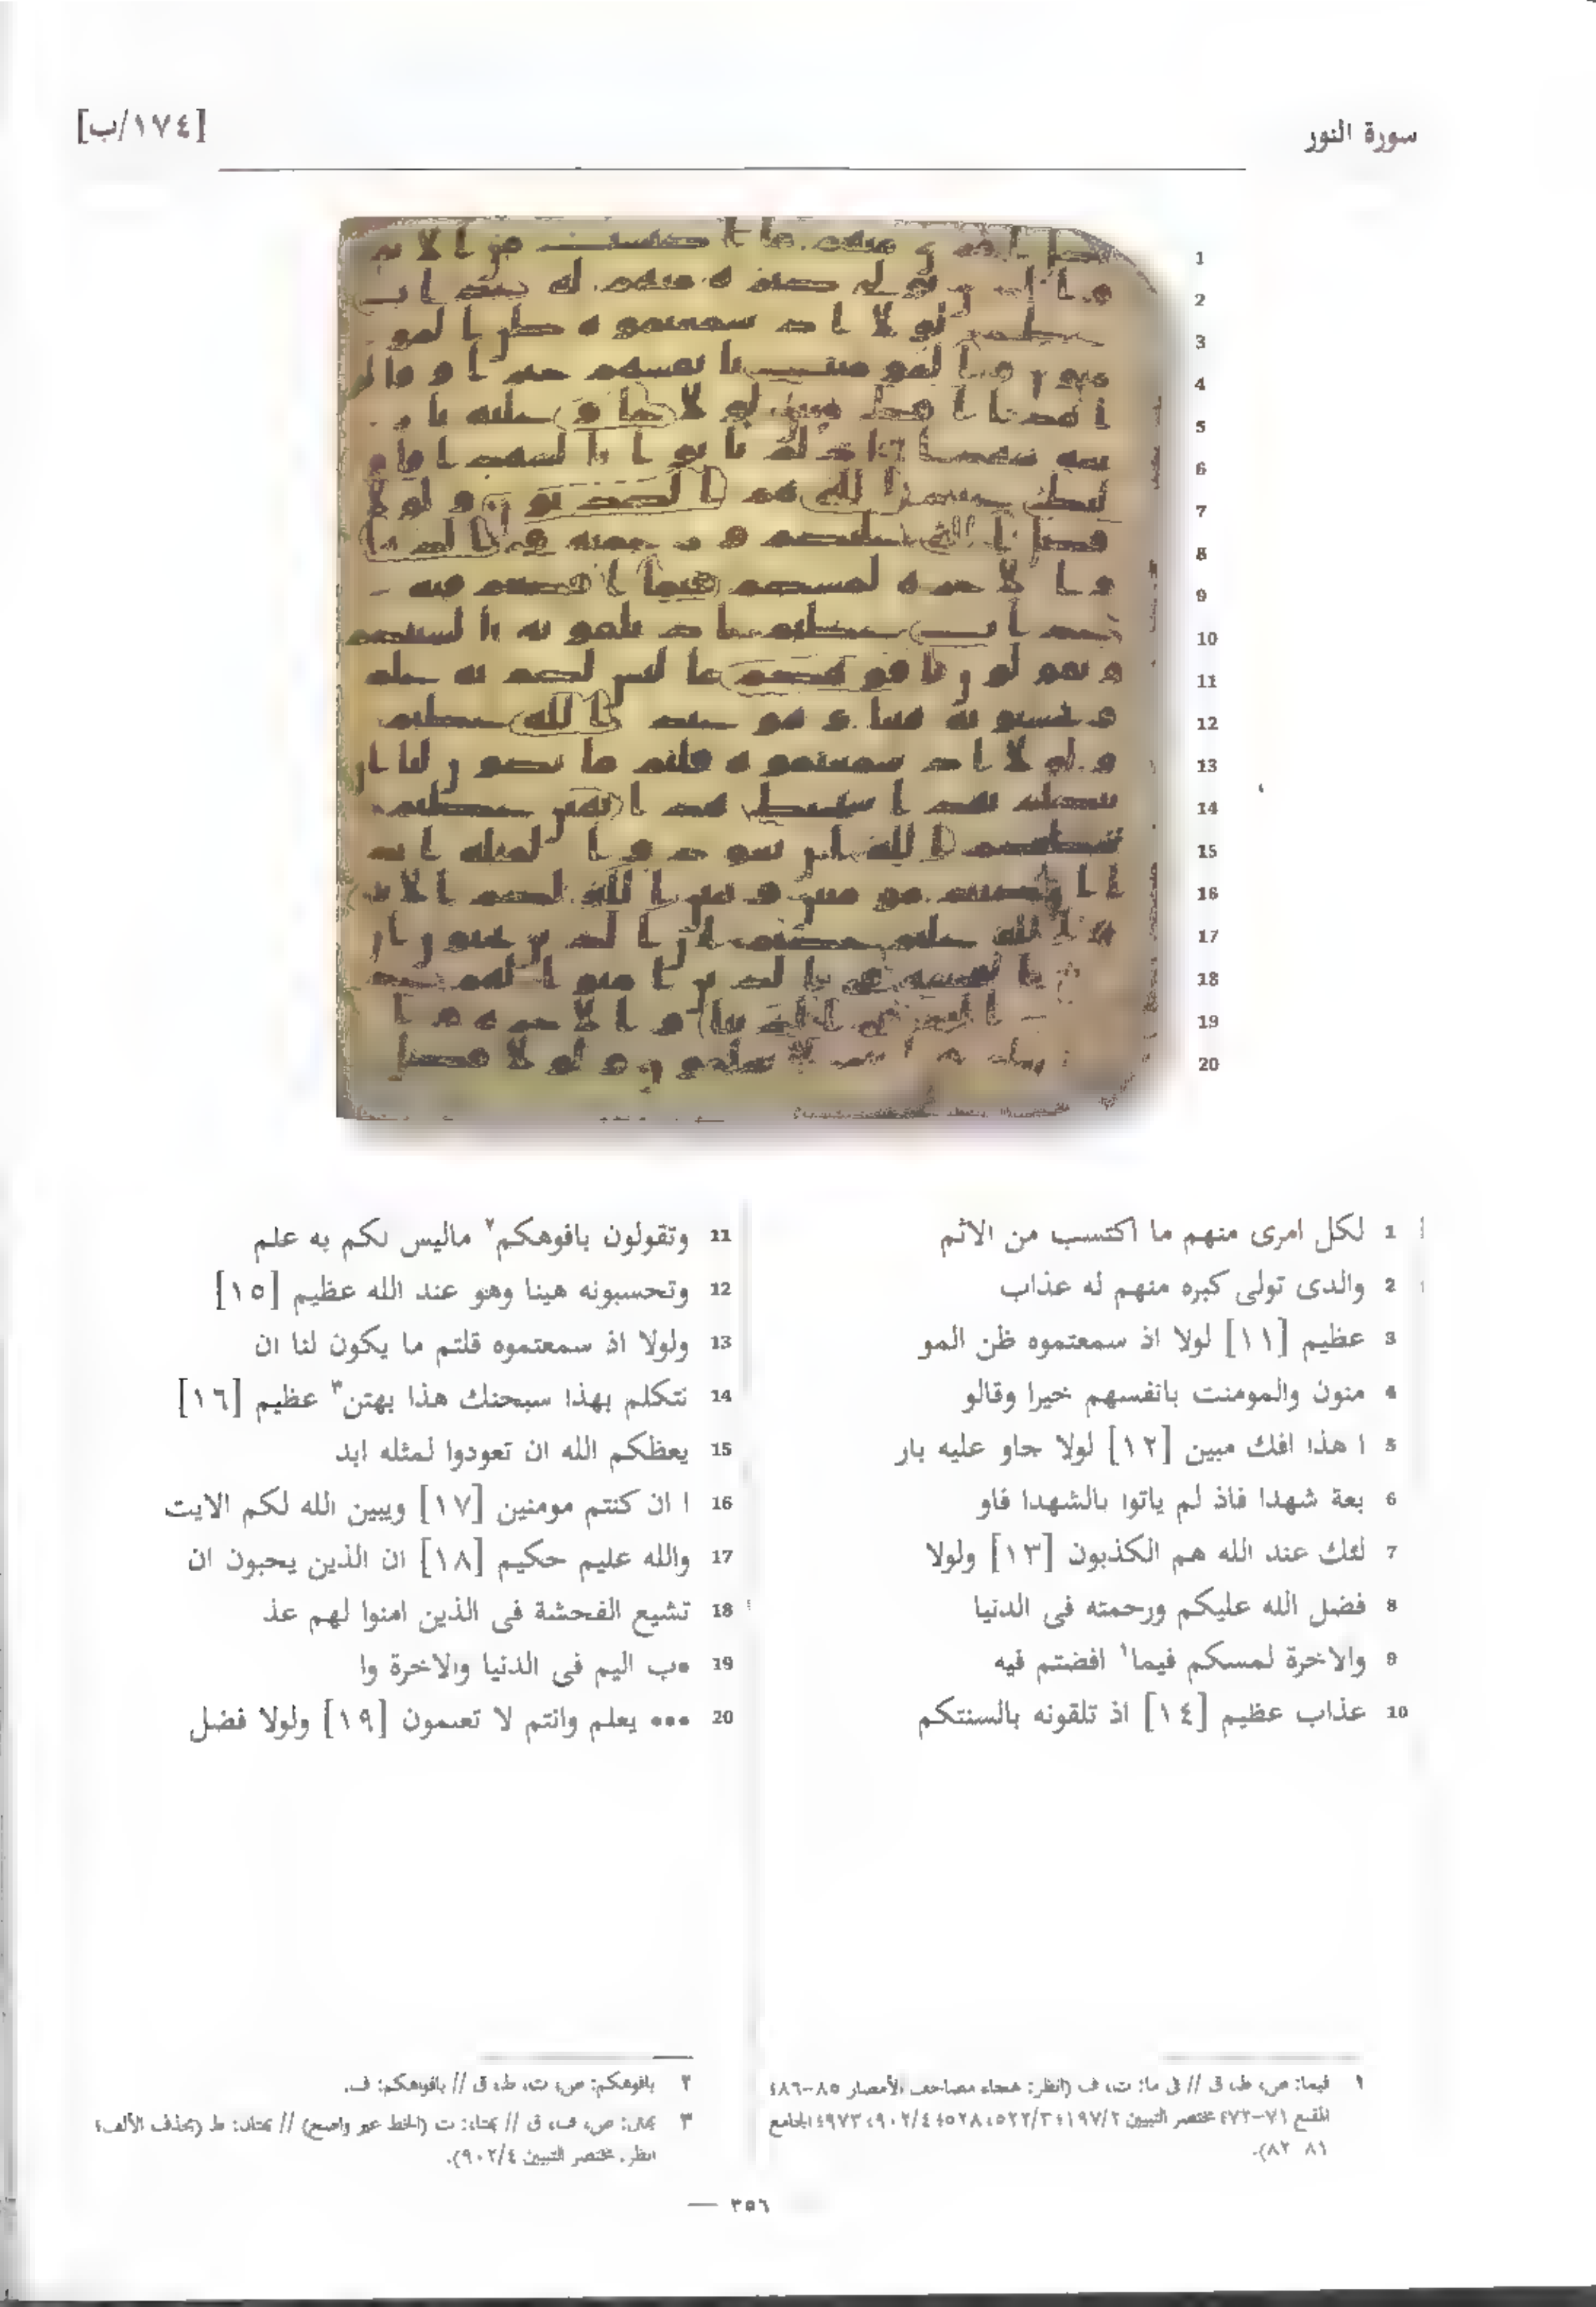 سورة النور
[١٧٤/ب]
1 لكل امرى منهم ما اكتسب من الاثم
2 والدى تولى كبره منهم له عذاب
3 عظيم [١١] لولا اذ سمعتموه ظن المو
4 منون والمومنت بانفسهم خيرا وقالو
5 ا هذا افك مبين [١٢] لولا جاو عليه بار
6 بعة شهدا فاذ لم ياتوا بالشهدا فاو
7 لئك عند الله هم الكذبون [١٣] ولولا
8 فضل الله عليكم ورحمته فى الدنيا
9 والاخرة لمسكم فيما١ افضتم فيه
10 عذاب عظيم [١٤] اذ تلقونه بالسنتكم
11 وتقولون بافوهكم٢ ماليس لكم به علم
12 وتحسبونه هينا وهو عند الله عظيم [١٥]
13 ولولا اذ سمعتموه قلتم ما يكون لنا ان
14 نتكلم بهذا سبحنك هذا بهتن٣ عظيم [١٦]
15 يعظكم الله ان تعودوا لمثله ابد
16 ا ان كنتم مومنين [١٧] ويبين الله لكم الايت
17 والله عليم حكيم [١٨] ان الذين يحبون ان
18 تشيع الفحشة فى الذين امنوا لهم عذ
19 •ب اليم فى الدنيا والاخرة وا
20 ••• يعلم وانتم لا تعلمون [١٩] ولولا فضل
١ فيما: ص، ط، ق // فى ما: ت، ف (انظر: هجاء مصاحف الأمصار ٨٥-٨٦؛
المقنع ٧١-٧٢؛ مختصر التبيين ١٩٧/٢؛ ٥٢٢/٣، ٥٢٨؛ ٩٠٢/٤، ٩٧٣؛ الجامع
٨١-٨٢).
٢ بافوهكم: ص، ت، ط، ق // بافواهكم: ف.
٣ بهتن: ص، ف، ق // بهتان: ت (الخط غير واضح) // بهتان: ط (بحذف الألف؛
انظر: مختصر التبيين ٩٠٢/٤).
٣٥٦